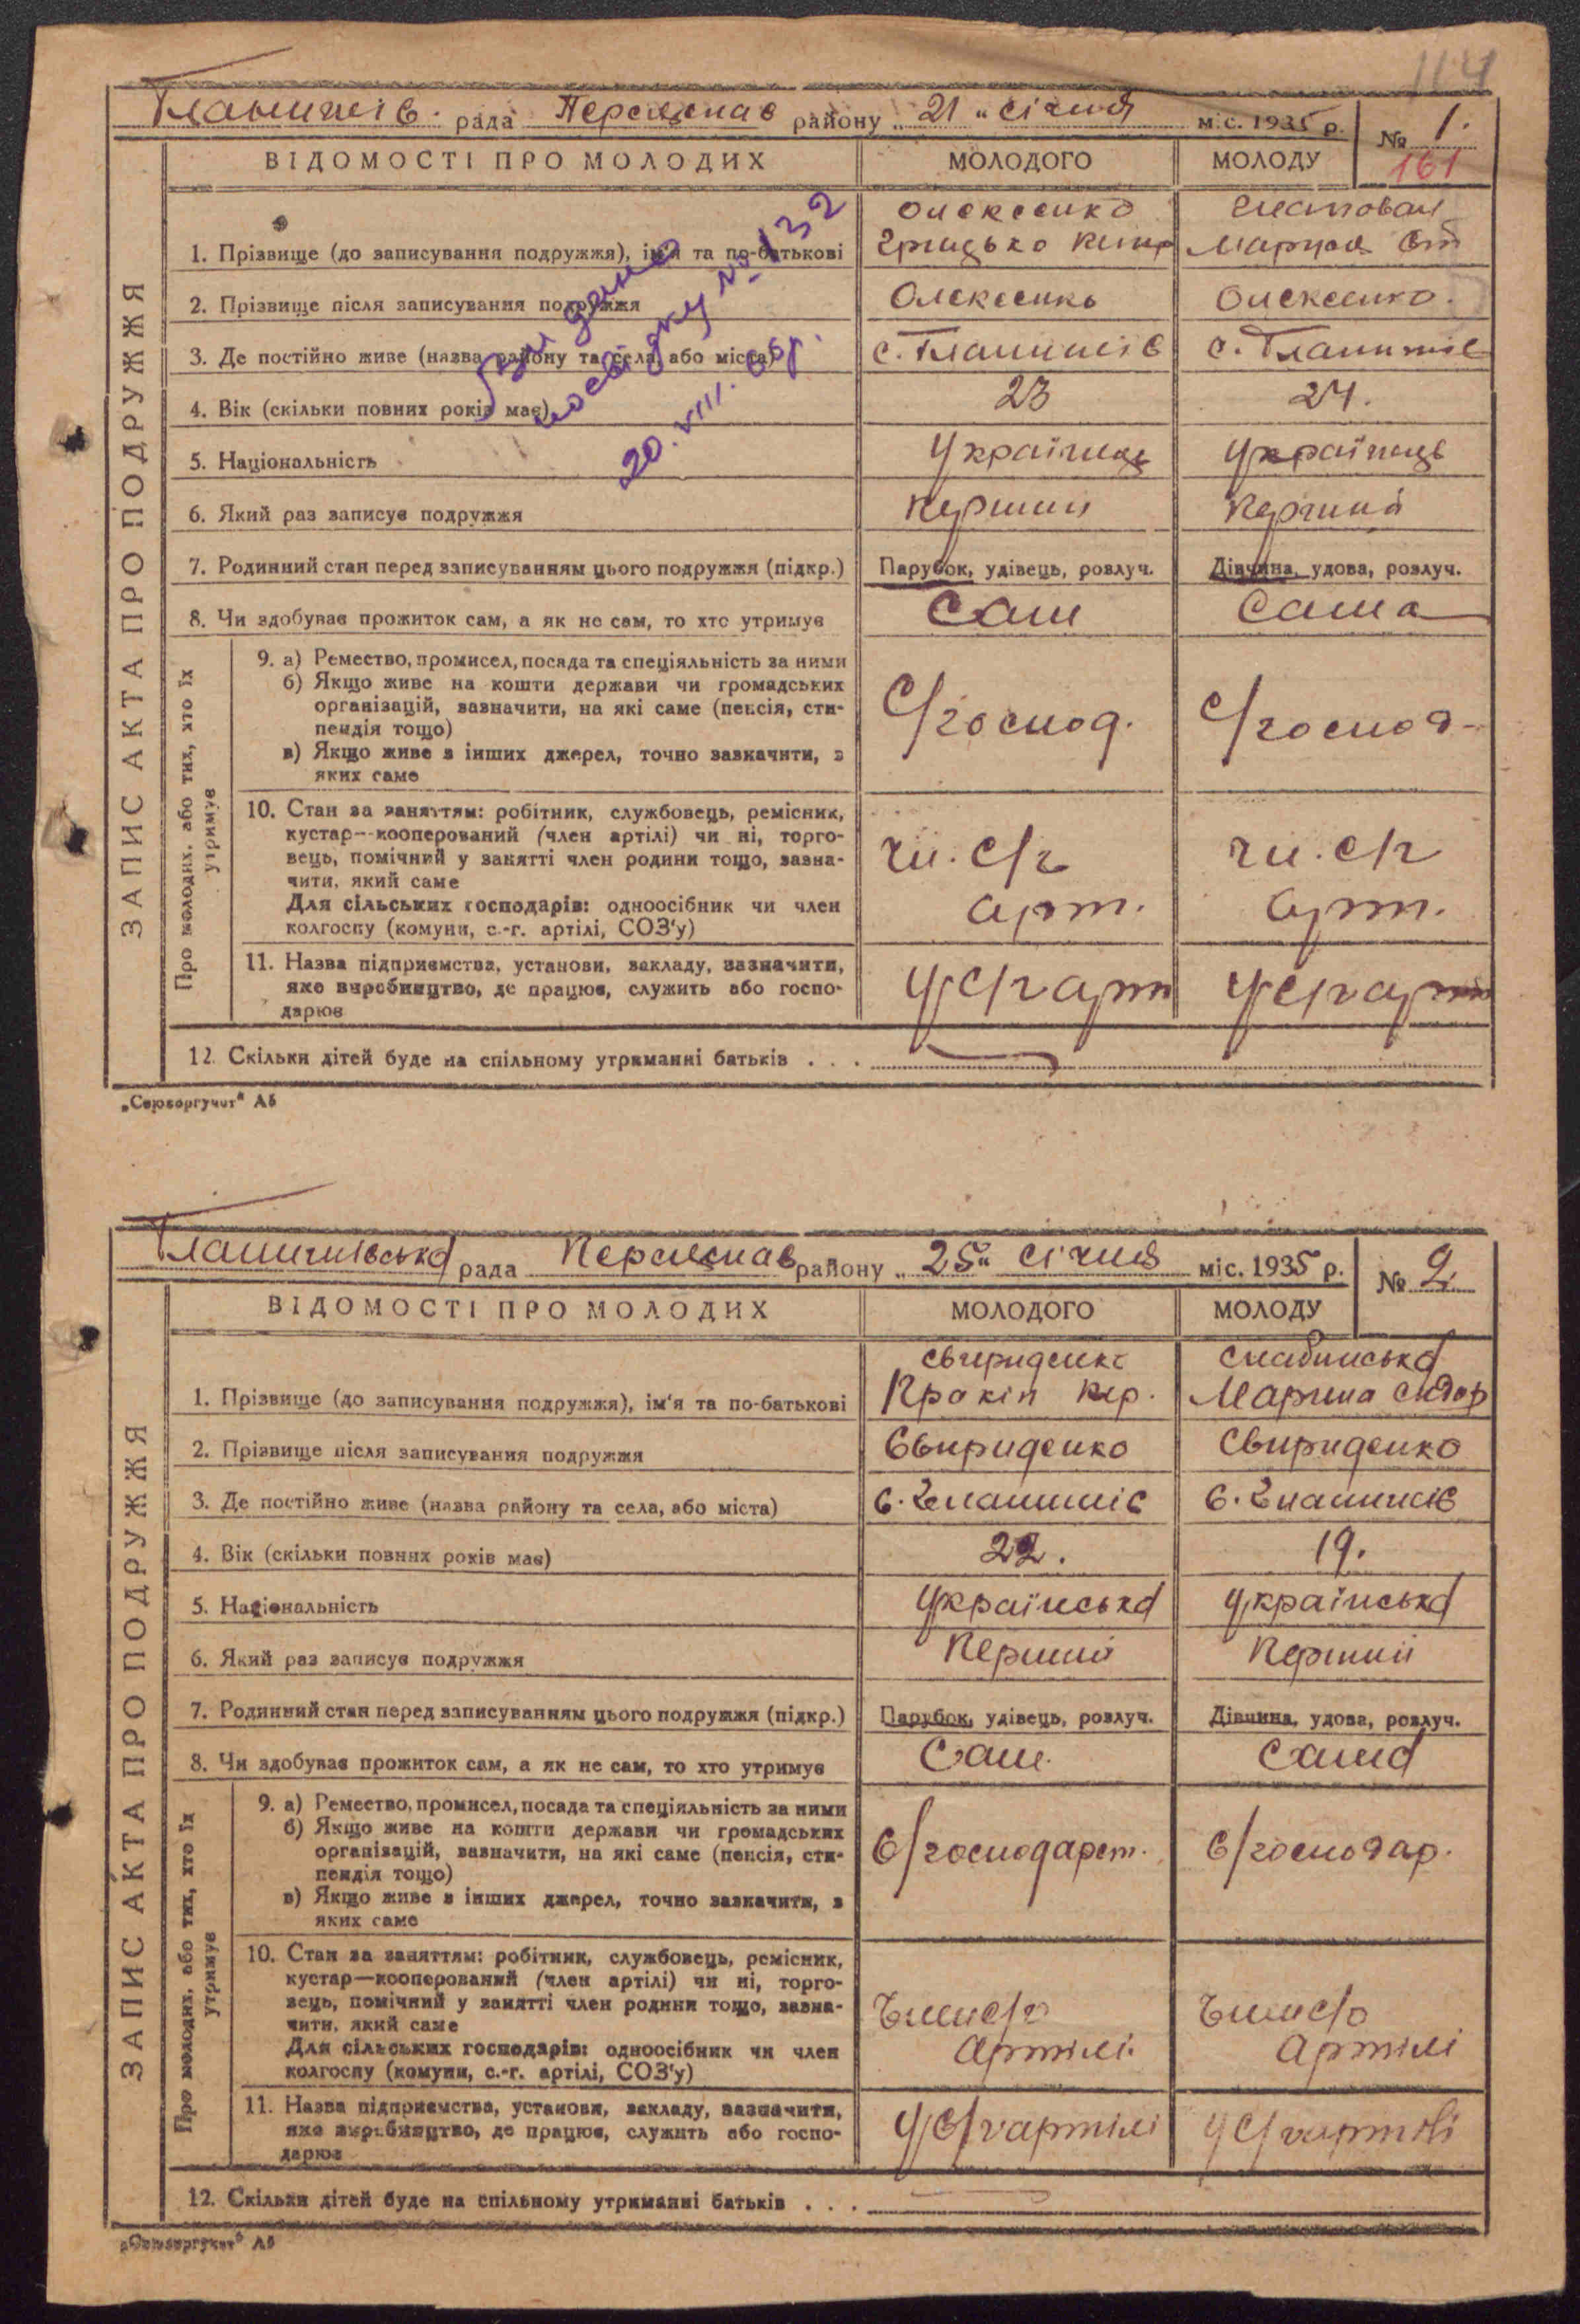 114
Гланишів. рада Переяслав району „21“ січня міс. 1935 р. № 1.
161
ВІДОМОСТІ ПРО МОЛОДИХ МОЛОДОГО МОЛОДУ
ЗАПИС АКТА ПРО ПОДРУЖЖЯ
Олексенко
1. Прізвище (до записування подружжя), ім'я та по-батькові Грицько Маруся
2. Прізвище після записування подружжя Олексенко Олексенко.
3. Де постійно живе (назва району та села, або міста) с. Гланишів с. Гланишів
4. Вік (скільки повних років має) 23 24.
5. Національність Українець Українець
6. Який раз записує подружжя Перший Перший
7. Родинний стан перед записуванням цього подружжя (підкр.) Парубок, удівець, розлуч. Дівчина, удова, розлуч.
8. Чи здобуває прожиток сам, а як не сам, то хто утримує Сам Сама
Про молодих, або тих, хто їх утримує
9. а) Ремество, промисел, посада та спеціяльність за ними
б) Якщо живе на кошти держави чи громадських
організацій, зазначити, на які саме (пенсія, сти-
пендія тощо) С/господ. С/господ.
в) Якщо живе з інших джерел, точно зазначити, з
яких саме
10. Стан за заняттям: робітник, службовець, ремісник,
кустар—кооперований (член артілі) чи ні, торго-
вець, помічний у занятті член родини тощо, зазна- чл. с/г чл. с/г
чити, який саме
Для сільських господарів: одноосібник чи член арт. арт.
колгоспу (комуни, с.-г. артілі, СОЗ'у)
11. Назва підприємства, установи, закладу, зазначити,
яке виробництво, де працює, служить або госпо- У с/г арт У с/г арт
дарює
12. Скільки дітей буде на спільному утриманні батьків . . .
дано
№ 132
20. VIII. 66р.
„Союзоргучет“ А5
Гланишівська рада Переяслав району „25“ січня міс. 1935 р. № 2
ВІДОМОСТІ ПРО МОЛОДИХ МОЛОДОГО МОЛОДУ
ЗАПИС АКТА ПРО ПОДРУЖЖЯ
Свириденко Слабинська
1. Прізвище (до записування подружжя), ім'я та по-батькові Прокіп Марина Сидор
2. Прізвище після записування подружжя Свириденко Свириденко
3. Де постійно живе (назва району та села, або міста) с. Гланишів с. Гланишів
4. Вік (скільки повних років має) 22. 19.
5. Національність Українська Українська
6. Який раз записує подружжя Перший Перший
7. Родинний стан перед записуванням цього подружжя (підкр.) Парубок, удівець, розлуч. Дівчина, удова, розлуч.
8. Чи здобуває прожиток сам, а як не сам, то хто утримує Сам. Сама
Про молодих, або тих, хто їх утримує
9. а) Ремество, промисел, посада та спеціяльність за ними
б) Якщо живе на кошти держави чи громадських
організацій, зазначити, на які саме (пенсія, сти- С/господарст. С/господар.
пендія тощо)
в) Якщо живе з інших джерел, точно зазначити, з
яких саме
10. Стан за заняттям: робітник, службовець, ремісник,
кустар—кооперований (член артілі) чи ні, торго-
вець, помічний у занятті член родини тощо, зазна-
чити, який саме
Для сільських господарів: одноосібник чи член Артілі Артілі
колгоспу (комуни, с.-г. артілі, СОЗ'у)
11. Назва підприємства, установи, закладу, зазначити,
яке виробництво, де працює, служить або госпо- У с/г артілі У с/г артілі
дарює
12. Скільки дітей буде на спільному утриманні батьків . . .
„Союзоргучет“ А5